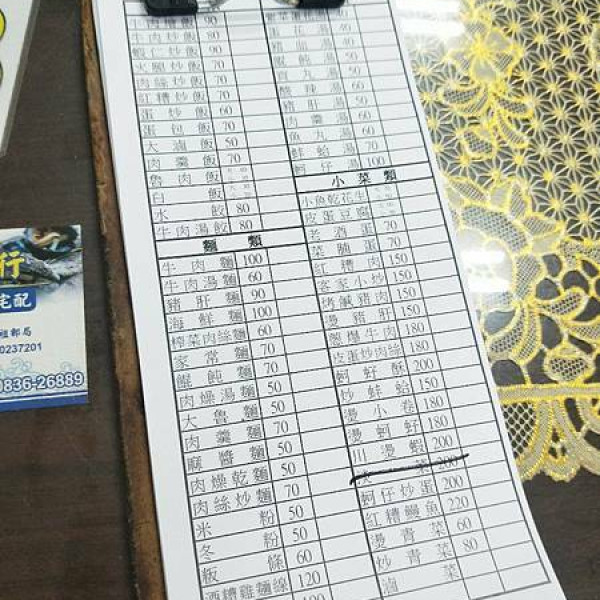 牛肉炒飯 90
蝦仁炒飯 80
火腿炒飯 90
肉絲炒飯 70
紅糟炒飯 70
蛋炒飯 60
蛋包飯 70
大滷飯 50
肉羹飯 70
魯肉飯
白飯
水餃 80
牛肉湯餃 80
麵類
牛肉麵 100
牛肉湯麵 60
豬肝麵 90
海鮮麵 100
榨菜肉絲麵 60
家常麵 70
餛飩麵 70
肉燥湯麵 50
大魯麵 50
肉羹麵 70
麻醬麵 50
肉燥乾麵 50
肉絲炒麵 70
米粉 50
冬粉 50
粄條 60
酒糟雞麵線 120
蛋花湯 40
餛飩湯 50
貢丸湯 50
酸辣湯 60
豬肝湯 50
肉羹湯 60
魚丸湯 50
蚌蛤湯 70
蚵仔湯 100
小菜類
小魚乾花生
皮蛋豆腐
老酒蛋 70
菜脯蛋 70
紅糟肉 150
客家小炒 150
烤鹹豬肉 150
燙豬肝 150
蔥爆牛肉 180
皮蛋炒肉絲 180
蚵仔酥 200
炒蚌蛤 150
燙小卷 180
燙蚵仔 180
川燙蝦 200
200
蚵仔炒蛋 200
紅糟鰻魚 220
燙青菜 60
炒青菜 80
滷菜
行
宅配
祖郵局
0237201
0836-26889